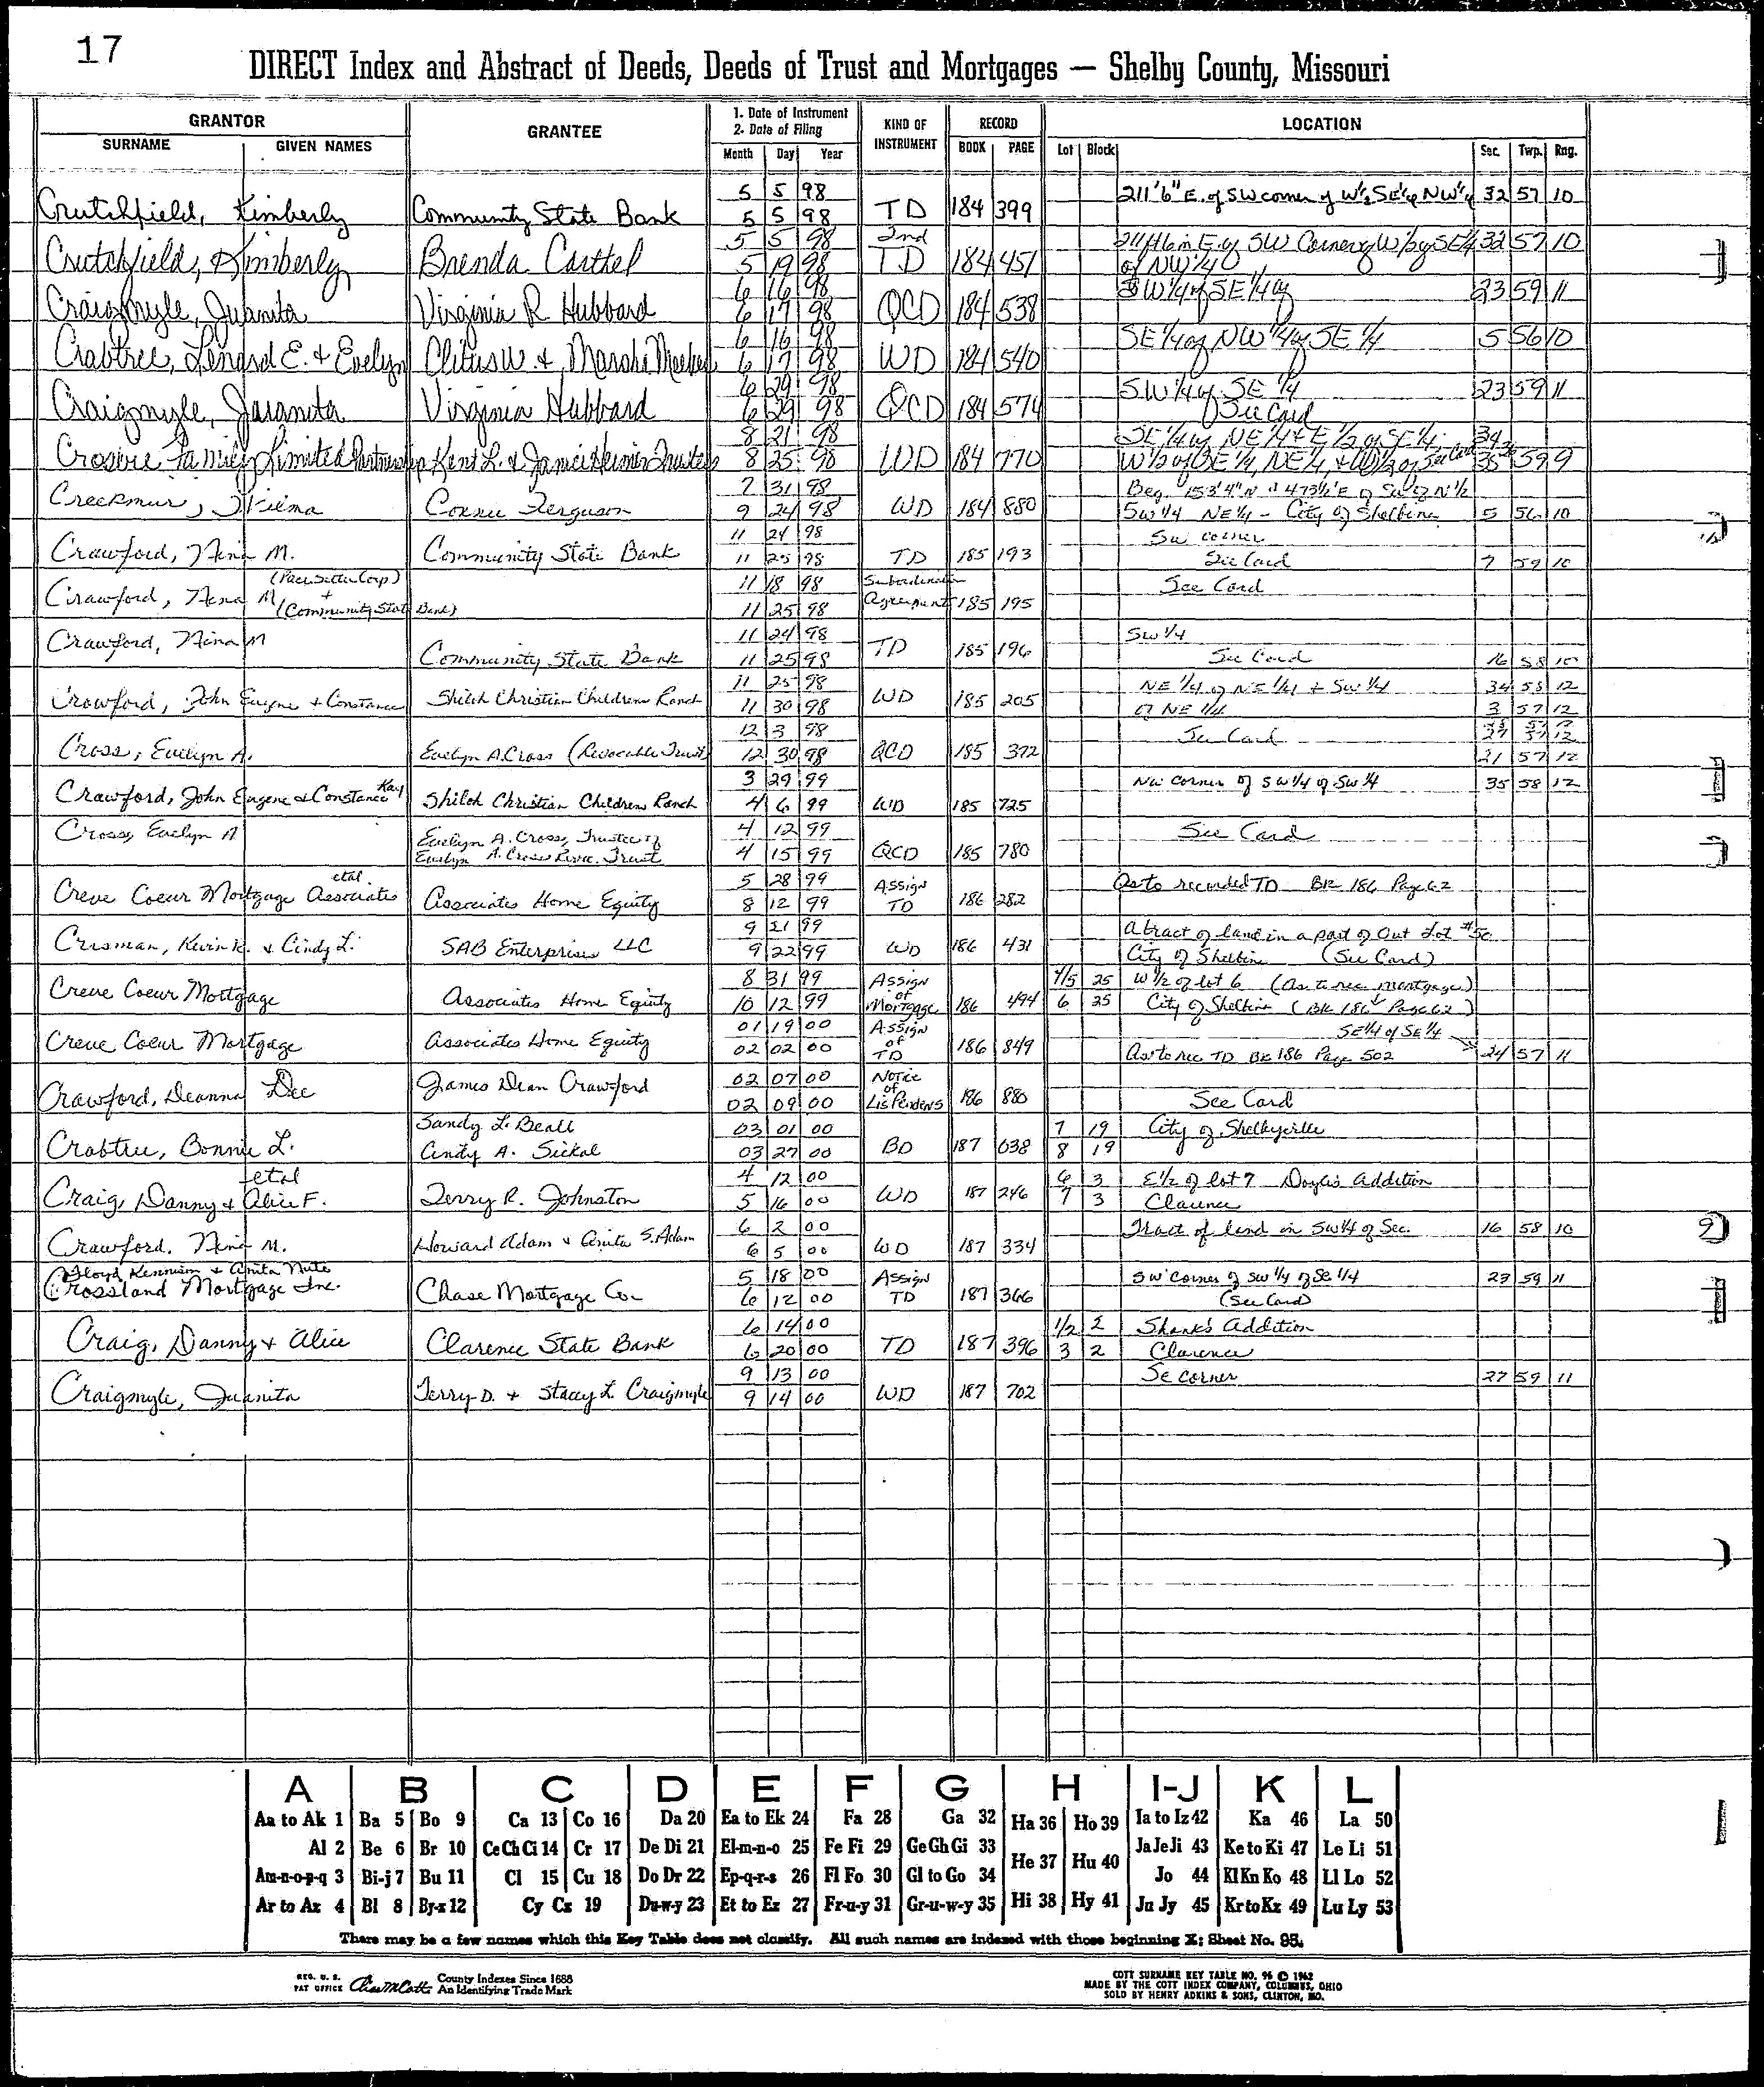 17
DIRECT Index and Abstract of Deeds, Deeds of Trust and Mortgages — Shelby County, Missouri
GRANTOR
SURNAME GIVEN NAMES
GRANTEE
1. Date of Instrument
2. Date of Filing
Month Day Year
KIND OF INSTRUMENT
RECORD
BOOK PAGE
LOCATION
Lot Block Sec. Twp. Rng.
5 5 98 211'6" E. of SW corner of W½ SE¼ NW¼ 32 57 10
Crutchfield, Kimberly Community State Bank 5 5 98 TD 184 399
5 5 98 2nd 211 ft 6 in E. of SW Corner of W½ of SE¼ 32 57 10
Crutchfield, Kimberly Brenda Carthel 5 19 98 TD 184 451 of NW 1/4
6 16 98 SW 1/4 of SE 1/4 of 23 59 11
Craigmyle, Juanita Virginia R Hubbard 6 17 98 QCD 184 538
6 16 98 SE 1/4 of NW 1/4 of SE 1/4 5 56 10
Crabtree, Lenard E. & Evelyn Clitus W. & Marsha 6 17 98 WD 184 540
6 29 98 SW 1/4 of SE 1/4 23 59 11
Craigmyle, Juanita Virginia Hubbard 6 29 98 QCD 184 574 See Card
8 21 98 SE 1/4 of NE 1/4 & E 1/2 of SE 1/4 34
Family Limited Partnership Kent L. & Janice Trustees 8 25 98 WD 184 770 W 1/2 of SE 1/4, NE 1/4, & W 1/2 of See Card 35 59 9
7 31 98 Beg. 153'4" N & 473½' E of SW of N½
Creekmur, Wilma Connie Ferguson 9 24 98 WD 184 880 SW 1/4 NE 1/4 - City of Shelbina 5 56 10
11 24 98 SW corner
Crawford, Nina M. Community State Bank 11 25 98 TD 185 193 See Card 7 59 10
(Pacesetter Corp.) 11 18 98 Subordination See Card
Crawford, Nina M. + (Community State Bank) 11 25 98 Agreement 185 195
Crawford, Nina M 11 24 98 SW 1/4
Community State Bank 11 25 98 TD 185 196 See Card 16 58 10
11 25 98 NE 1/4 of NE 1/4 + SW 1/4 34 58 12
Crawford, John Eugene + Constance Shiloh Christian Children Ranch 11 30 98 WD 185 205 of NE 1/4 3 57 12
12 3 98 See Card 27 57 12
Cross, Evelyn A. Evelyn A. Cross (Revocable Trust) 12 30 98 QCD 185 372 21 57 12
Kay 3 29 99 NW corner of SW 1/4 of SW 1/4 35 58 12
Crawford, John Eugene & Constance Shiloh Christian Children Ranch 4 6 99 WD 185 725
Cross, Evelyn A Evelyn A. Cross, Trustee of 4 12 99 See Card
Evelyn A. Cross Revoc. Trust 4 15 99 QCD 185 780
etal 5 28 99 Assign As to recorded TD BK 186 Page 62
Creve Coeur Mortgage Associates Associates Home Equity 8 12 99 TD 186 282
9 21 99 A tract of land in a part of Out Lot #50
Crisman, Kevin K. & Cindy L. SAB Enterprises LLC 9 22 99 WD 186 431 City of Shelbina (See Card)
8 31 99 Assign 4/5 25 W 1/2 of lot 6 (As to rec. mortgage)
Creve Coeur Mortgage Associates Home Equity 10 12 99 of Mortgage 186 494 6 25 City of Shelbina (BK 186 Page 62)
01 19 00 Assign SE 1/4 of SE 1/4
Creve Coeur Mortgage Associates Home Equity 02 02 00 of TD 186 849 As to rec TD BK 186 Page 502 24 57 11
02 07 00 Notice
Crawford, Deanna Dee James Dean Crawford 02 09 00 of Lis Pendens 186 880 See Card
Sandy L. Beall 03 01 00 7 19 City of Shelbyville
Crabtree, Bonnie L. Cindy A. Sickal 03 27 00 BD 187 038 8 19
etal 4 12 00 6 3 E 1/2 of lot 7 Doyle's Addition
Craig, Danny & Alice F. Terry R. Johnston 5 16 00 WD 187 246 7 3 Clarence
6 2 00 Tract of land in SW 1/4 of Sec. 16 58 10
Crawford, Nina M. Howard Adam & Anita S. Adam 6 5 00 WD 187 334
Floyd & Anita Nute 5 18 00 Assign SW corner of SW 1/4 of SE 1/4 23 59 11
Crossland Mortgage Inc. Chase Mortgage Co 6 12 00 TD 187 366 (See Card)
6 14 00 1/2 2 Shank's Addition
Craig, Danny & Alice Clarence State Bank 6 20 00 TD 187 396 3 2 Clarence
9 13 00 SE corner 27 59 11
Craigmyle, Juanita Terry D. + Stacy L. Craigmyle 9 14 00 WD 187 702
A B C D E F G H I-J K L
Aa to Ak 1 Ba 5 Bo 9 Ca 13 Co 16 Da 20 Ea to Ek 24 Fa 28 Ga 32 Ha 36 Ho 39 Ia to Iz 42 Ka 46 La 50
Al 2 Be 6 Br 10 Ce Ch Ci 14 Cr 17 De Di 21 El-m-n-o 25 Fe Fi 29 Ge Gh Gi 33 He 37 Hu 40 Ja Je Ji 43 Ke to Ki 47 Le Li 51
Am-n-o-p-q 3 Bi-j 7 Bu 11 Cl 15 Cu 18 Do Dr 22 Ep-q-r-s 26 Fl Fo 30 Gl to Go 34 Jo 44 Kl Kn Ko 48 Ll Lo 52
Ar to Az 4 Bl 8 By-z 12 Cy Cz 19 Du-w-y 23 Et to Ez 27 Fr-u-y 31 Gr-u-w-y 35 Hi 38 Hy 41 Ju Jy 45 Kr to Kz 49 Lu Ly 53
There may be a few names which this Key Table does not classify. All such names are indexed with those beginning X; Sheet No. 95.
REG. U. S. PAT OFFICE County Indexes Since 1888
An Identifying Trade Mark
COTT SURNAME KEY TABLE NO. 96 © 1962
MADE BY THE COTT INDEX COMPANY, COLUMBUS, OHIO
SOLD BY HENRY ADKINS & SONS, CLINTON, MO.